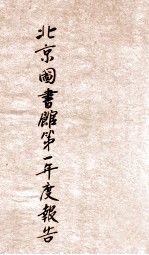 北京圖書館第一年度報告